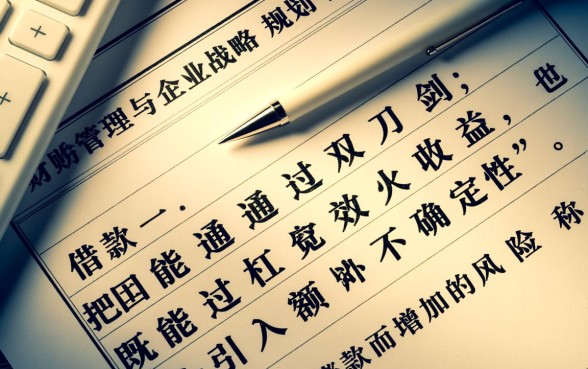 管理与企业战略 规划
借款一．
把田能通通过双刀剑；
既能过杠宽效火收益，世
引入额 不确定性”。
款而增加的风险 称